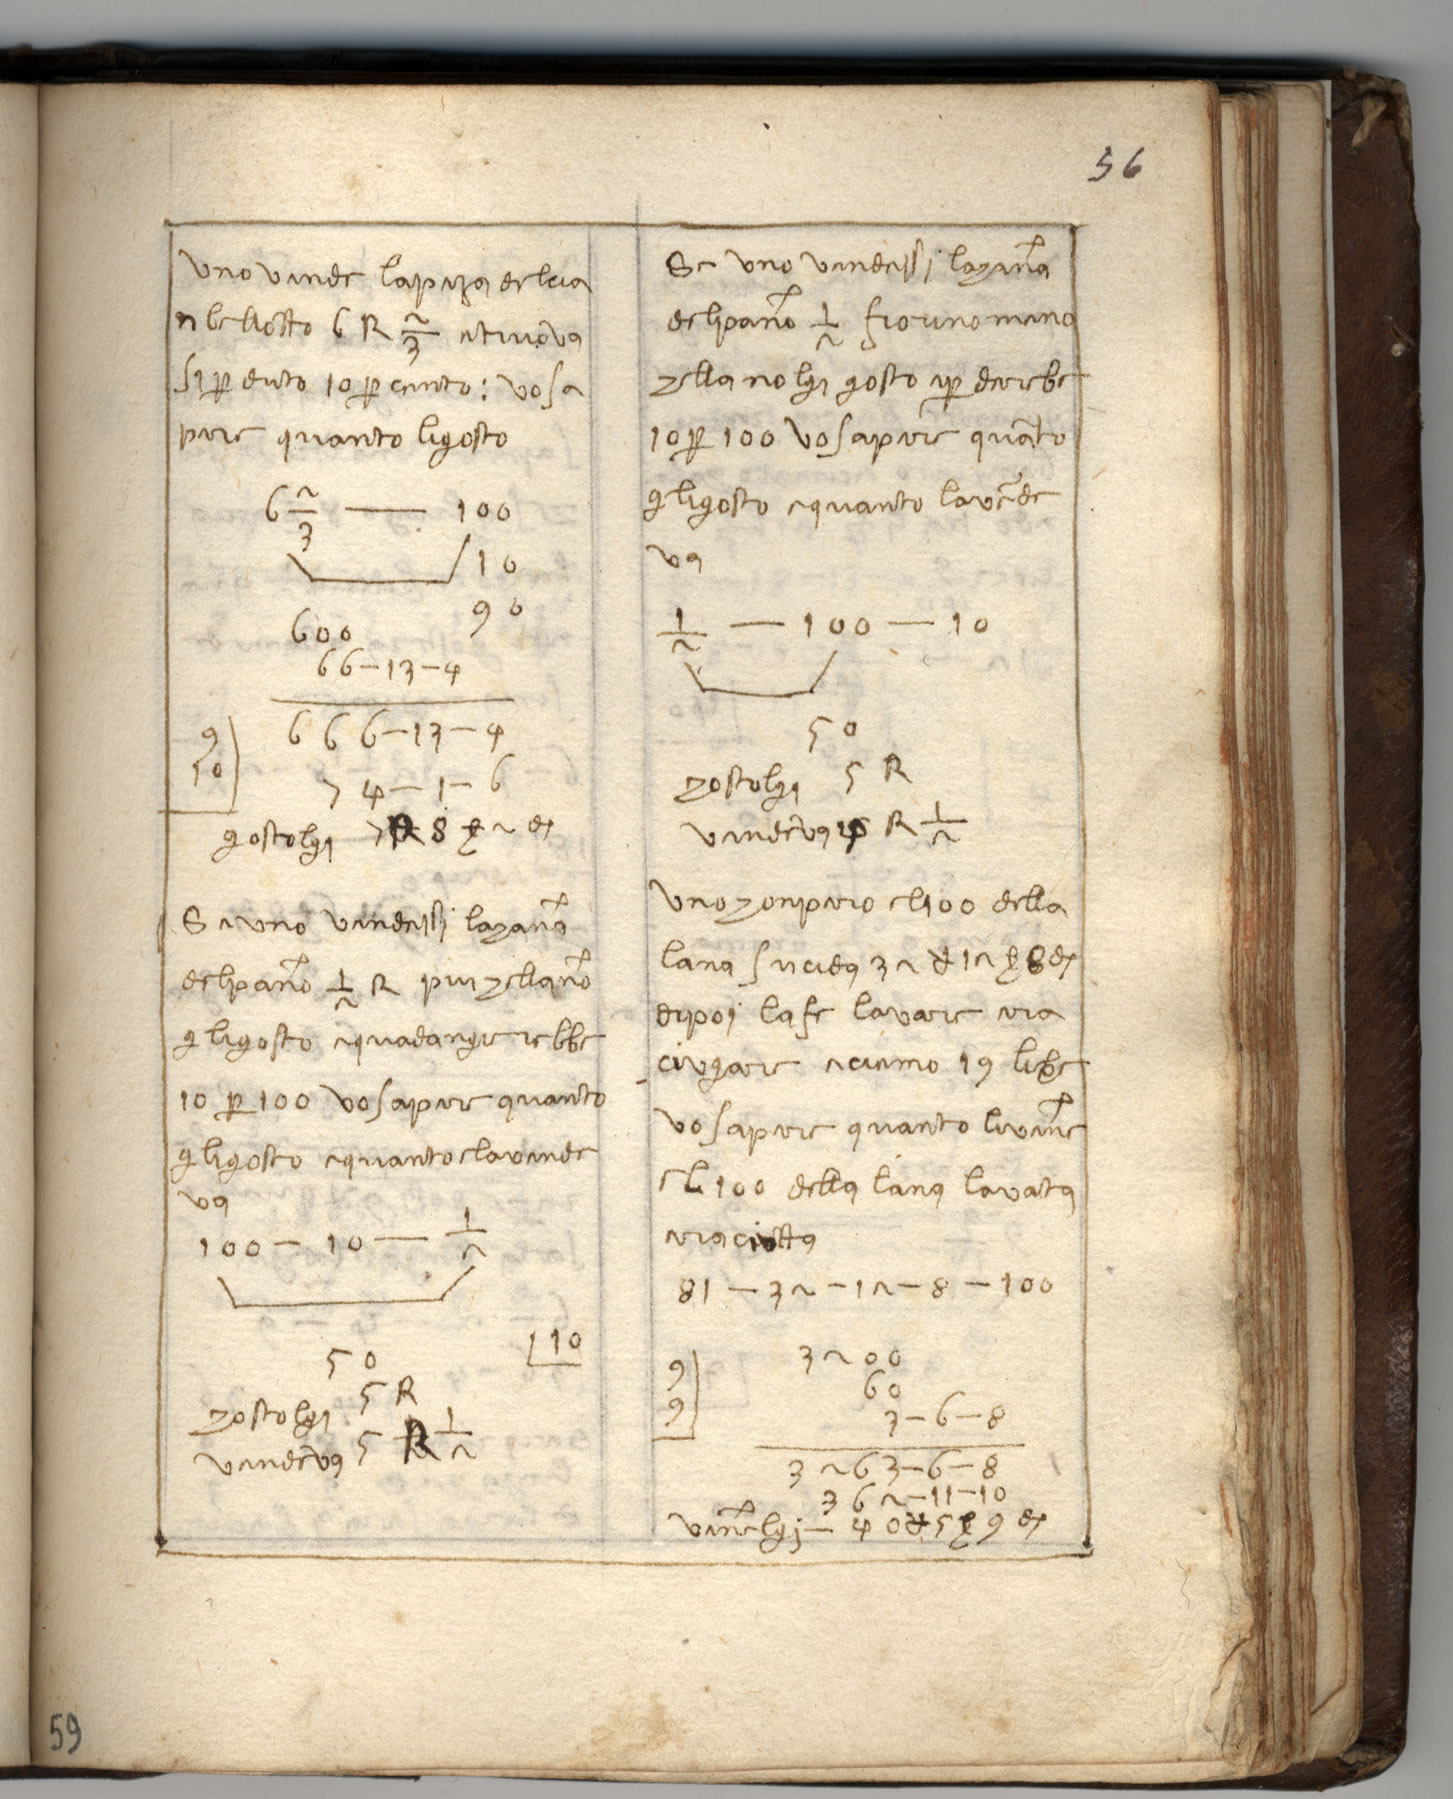 56
Uno vende la peza del cia
nbellotto 6 R 2/3 e truova
si per duto 10 per cento: vo sa
pere quanto li gosto
6 2/3 — 100
10
90
600
66–13–4
666–13–4
9
10
74–1–6
gostolgi 7 R 8 ß 2 d
Se uno vendessi la zana
del pano 1/2 R piu zella no
gli gosto e quadangierebbe
10 per 100 vo sapere quanto
gli gosto e quanto e la vende
va
100 – 10 — 1/2
50
10
zostolgi 5 R
vendeva 5 R 1/2
Se uno vendessi la zana
del pano 1/2 fiorino meno
zella no lgi gosto e perderebe
10 per 100 vo sapere quato
gli gosto e quanto la vede
va
1/2 — 100 — 10
50
zostolgi 5 R
vendeva 4 R 1/2
Uno zonpero el 100 della
lana sucida 32 12 ß 8 d
dipoi la fe lavare e la
civgare e ciemo 19 libe
vo sapere quanto li viene
el 100 della lana lavata
81 — 32 – 12 – 8 – 100
9
9
3200
60
3–6–8
3263–6–8
362–11–10
vienelgi – 40 5 ß 9 d
59